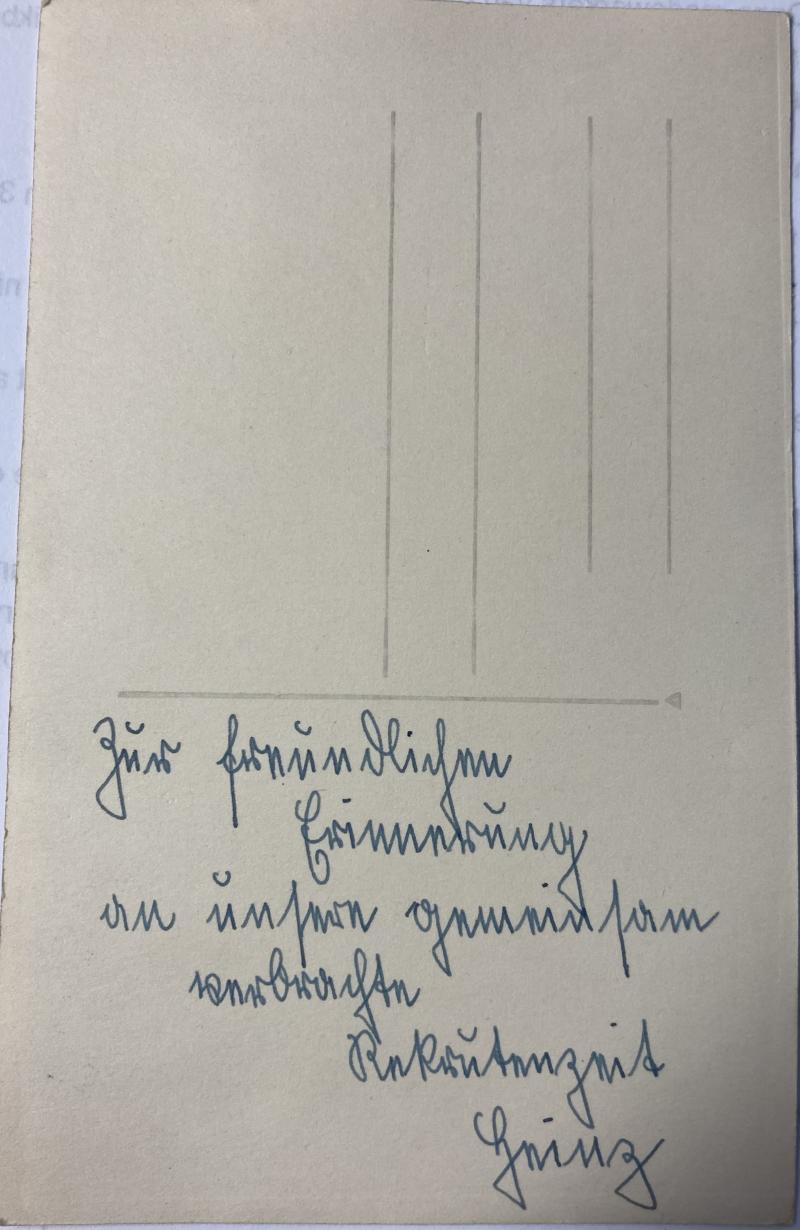 Zur freundlichen
Erinnerung
an unsere gemeinsam
verbrachte
Rekrutenzeit
Heinz